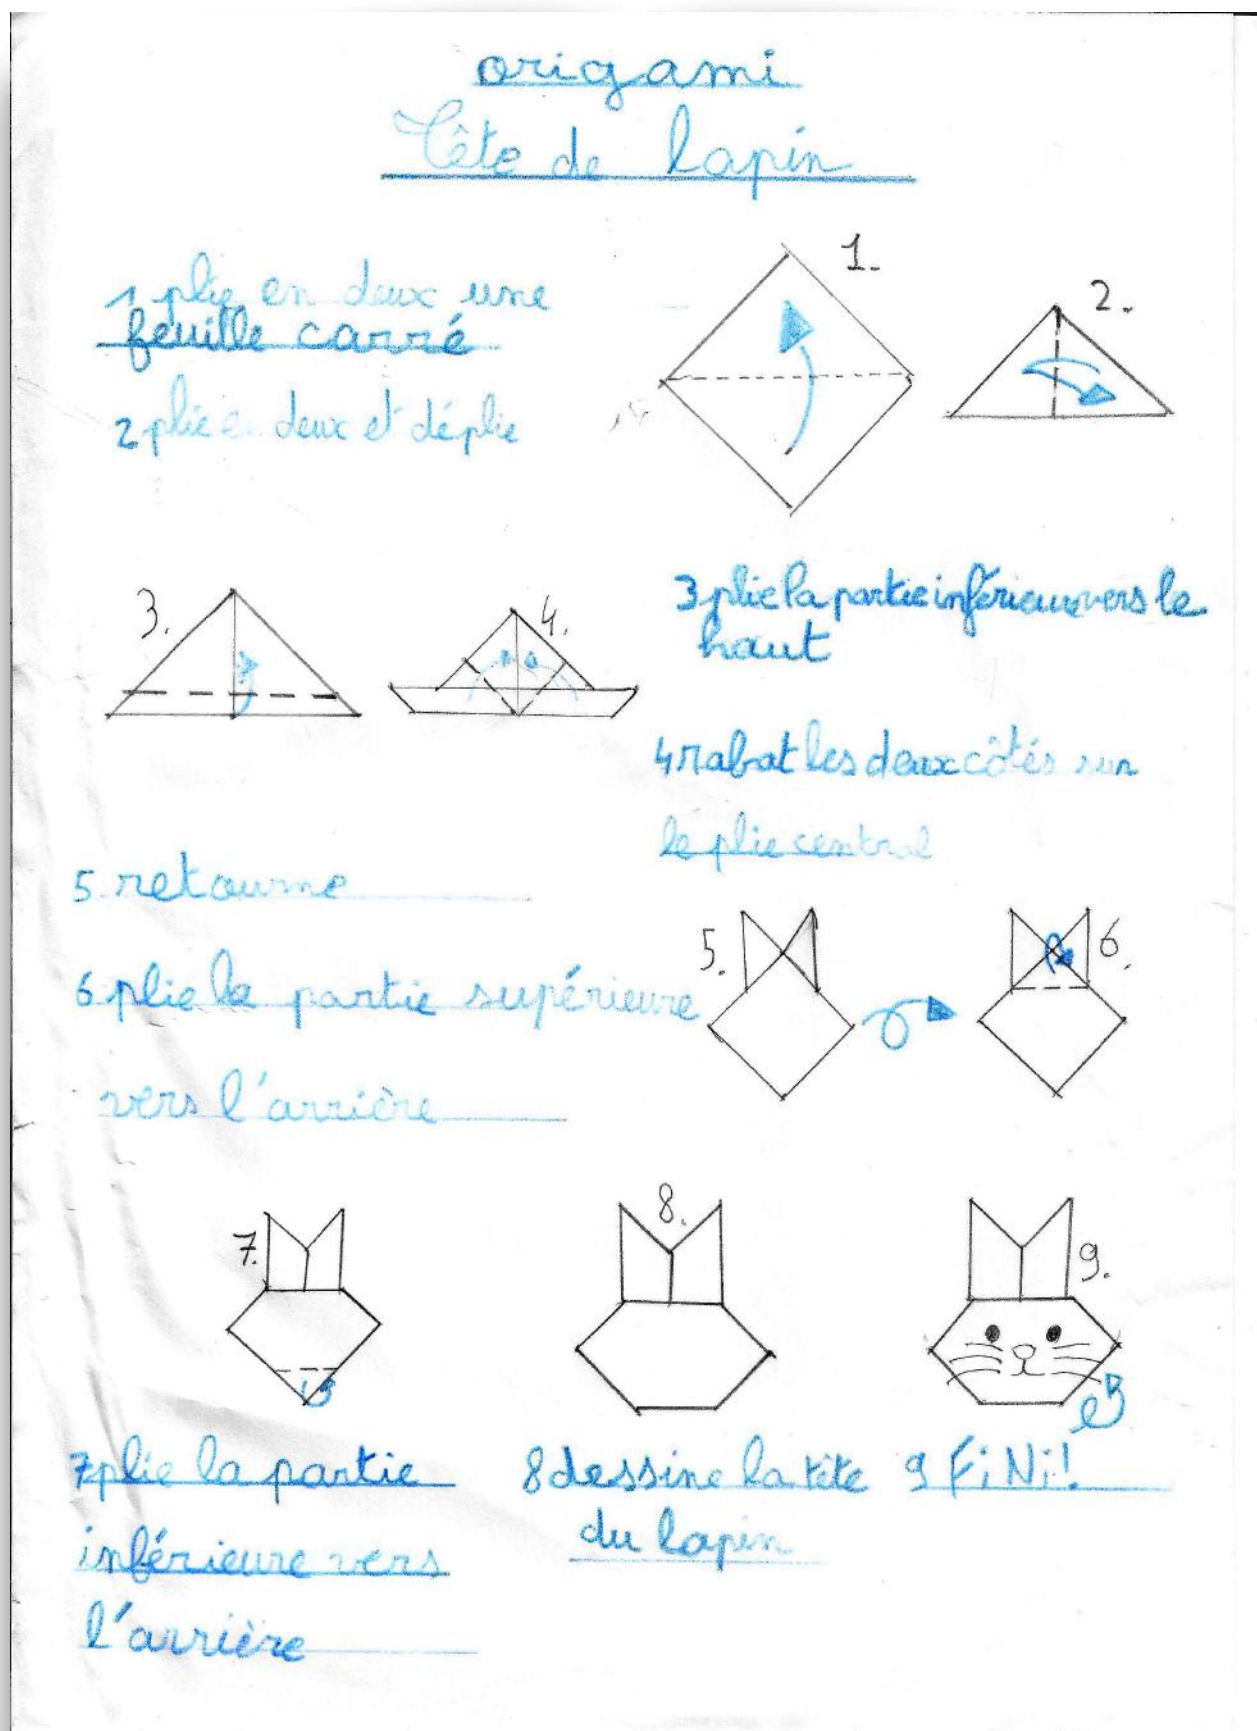 origami
Tête de lapin
1.
1 plie en deux une
feuille carré
2.
2 plie en deux et déplie
3.
4.
3 plie la partie inférieure vers le
haut
4 rabat les deux côtés sur
le plie central
5 retourne
5.
6.
6 plie la partie supérieure
vers l'arrière
7.
8.
9.
7 plie la partie
inférieure vers
l'arrière
8 dessine la tête
du lapin
9 FiNi!